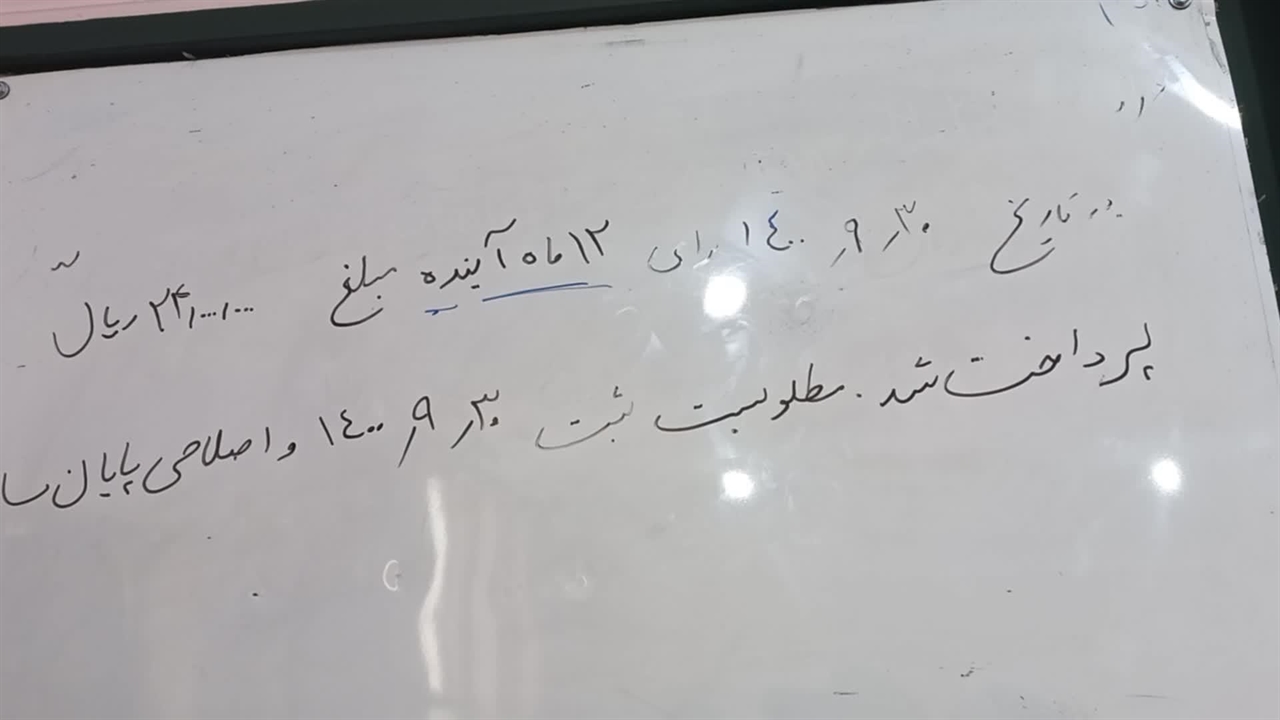 در تاریخ ۱۴۰۰ر۹ر۳۰ برای ۱۲ ماه آینده مبلغ ۲۴٫۰۰۰٫۰۰۰ ریال
پرداخت شد. مطلوبست ثبت ۱۴۰۰ر۹ر۳۰ و اصلاحی پایان سا